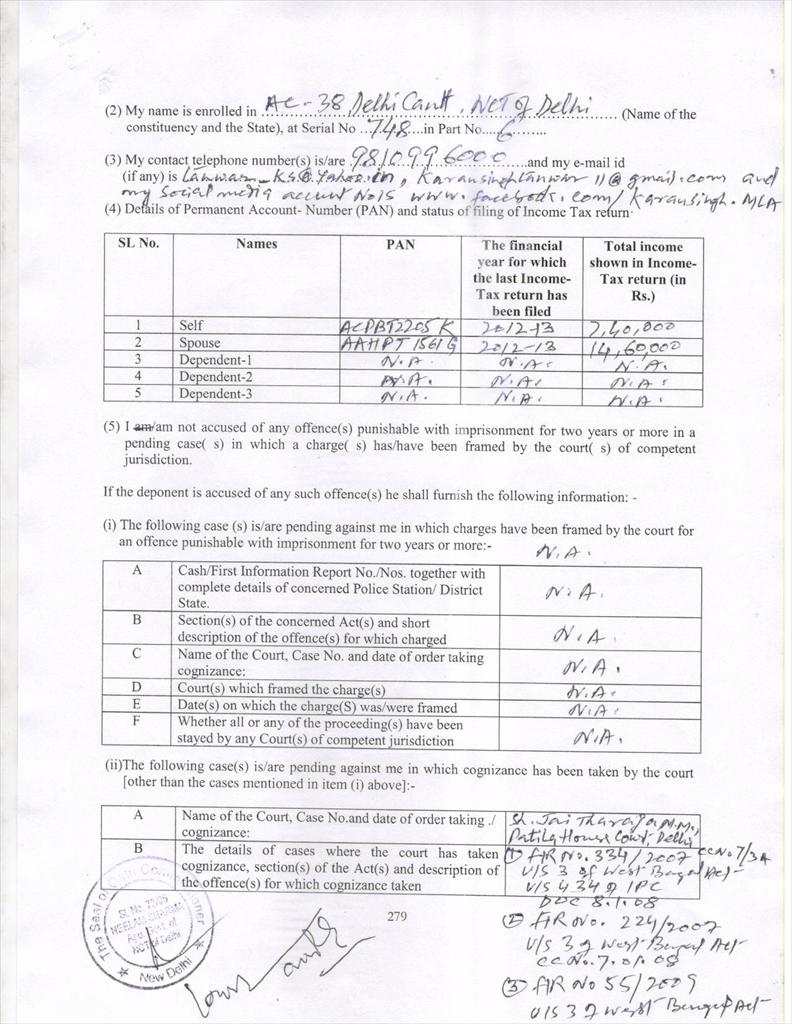 (2) My name is enrolled in AC-38 Delhi Cantt. NCT of Delhi (Name of the
constituency and the State), at Serial No 748 in Part No. 6
(3) My contact telephone number(s) is/are 9810996000 and my e-mail id
(if any) is tanwar_ks@yahoo.in, Karansinghtanwar11@gmail.com and
my social media account No is www.facebook.com/Karansingh.MLA
(4) Details of Permanent Account- Number (PAN) and status of filing of Income Tax return
SL No. Names PAN The financial year for which the last Income-Tax return has been filed Total income shown in Income-Tax return (in Rs.)
1 Self ACPBT2205K 2012-13 2,40,000
2 Spouse AAHPT1561G 2012-13 14,60,000
3 Dependent-1 N.A. N.A. N.A.
4 Dependent-2 N.A. N.A. N.A.
5 Dependent-3 N.A. N.A. N.A.
(5) I am/am not accused of any offence(s) punishable with imprisonment for two years or more in a
pending case( s) in which a charge( s) has/have been framed by the court( s) of competent
jurisdiction.
If the deponent is accused of any such offence(s) he shall furnish the following information: -
(i) The following case (s) is/are pending against me in which charges have been framed by the court for
an offence punishable with imprisonment for two years or more:-
N.A.
A Cash/First Information Report No./Nos. together with
complete details of concerned Police Station/ District
State. N.A.
B Section(s) of the concerned Act(s) and short
description of the offence(s) for which charged N.A.
C Name of the Court, Case No. and date of order taking
cognizance: N.A.
D Court(s) which framed the charge(s) N.A.
E Date(s) on which the charge(S) was/were framed N.A.
F Whether all or any of the proceeding(s) have been
stayed by any Court(s) of competent jurisdiction N.A.
(ii)The following case(s) is/are pending against me in which cognizance has been taken by the court
[other than the cases mentioned in item (i) above]:-
A Name of the Court, Case No.and date of order taking ./
cognizance: Sh. Jai Thareja M.M.,
Patila House Court, Delhi
B The details of cases where the court has taken
cognizance, section(s) of the Act(s) and description of
the offence(s) for which cognizance taken
(1) FIR No. 334/2007 CC No 7/3A
U/S 3 of West Bengal Act
U/S 434 of IPC
DOC 8.1.08
(2) FIR No. 224/2007
U/S 3 of West Bengal Act
CC No. 7.01.08
(3) FIR No 55/2009
U/S 3 of West Bengal Act
279
The Seal of Oath Commissioner
New Delhi